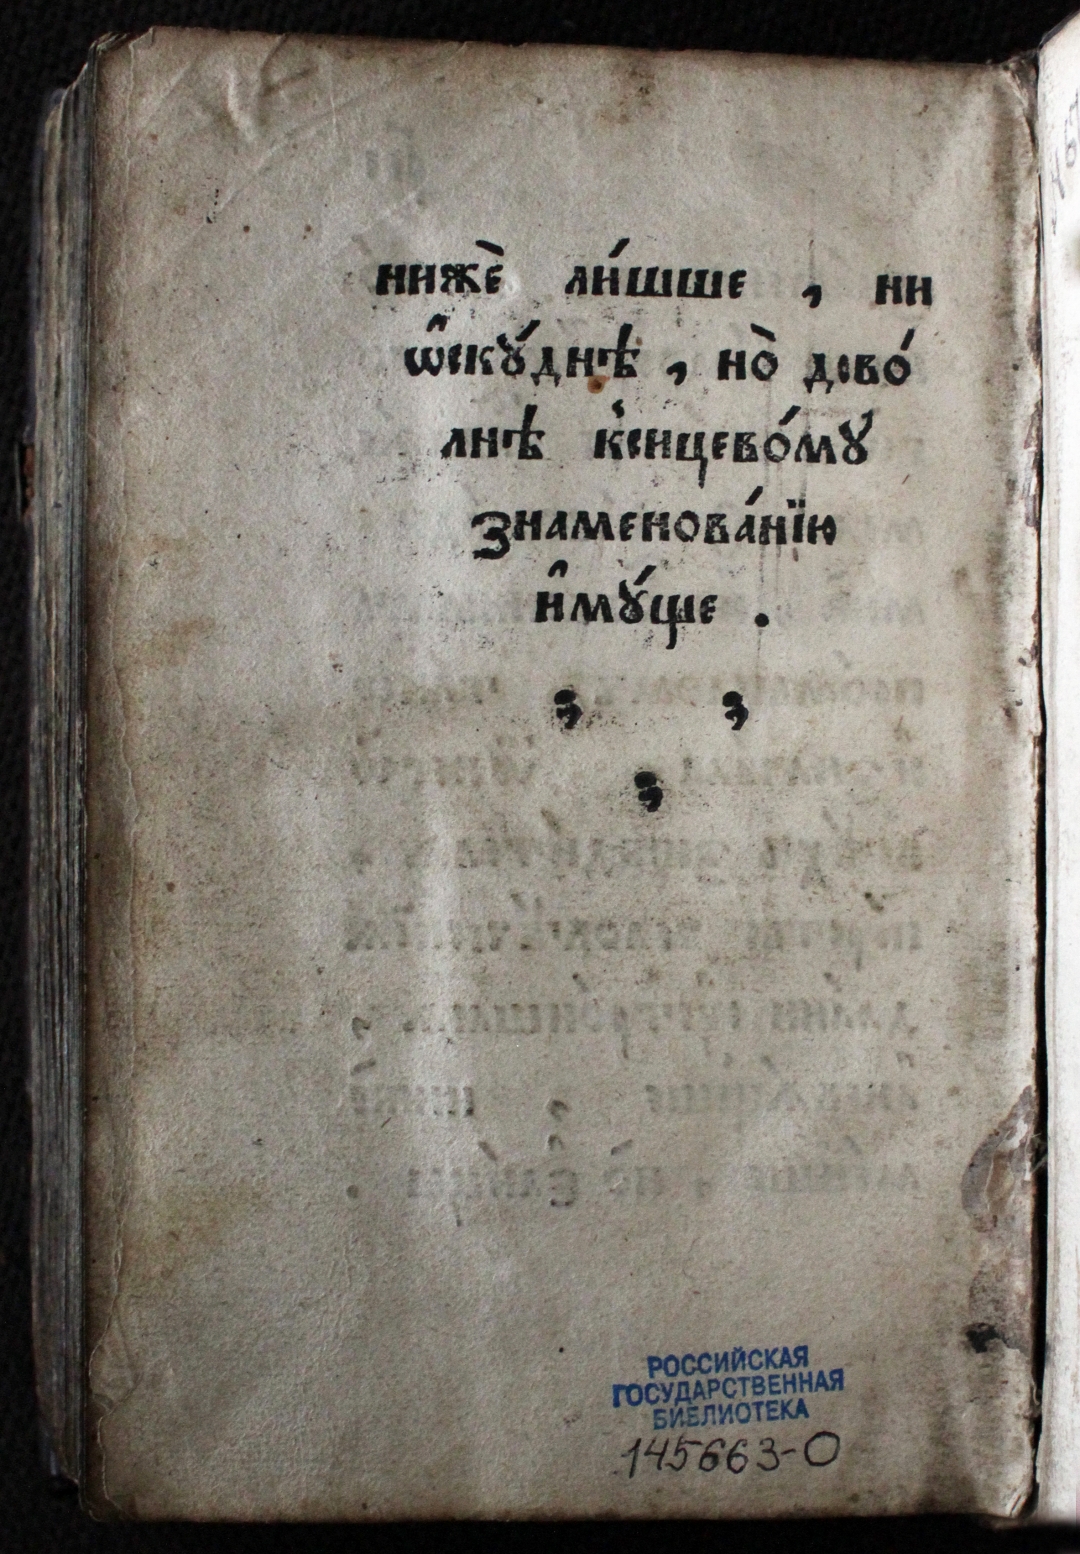 нижѐ ли́шше , ни
ѡ҆ску́днѣ , но̀ дово́
лнѣ к҆онцево́мꙋ
знаменова́нїю
и҆мꙋ́ще .
РОССИЙСКАЯ
ГОСУДАРСТВЕННАЯ
БИБЛИОТЕКА
145663-О